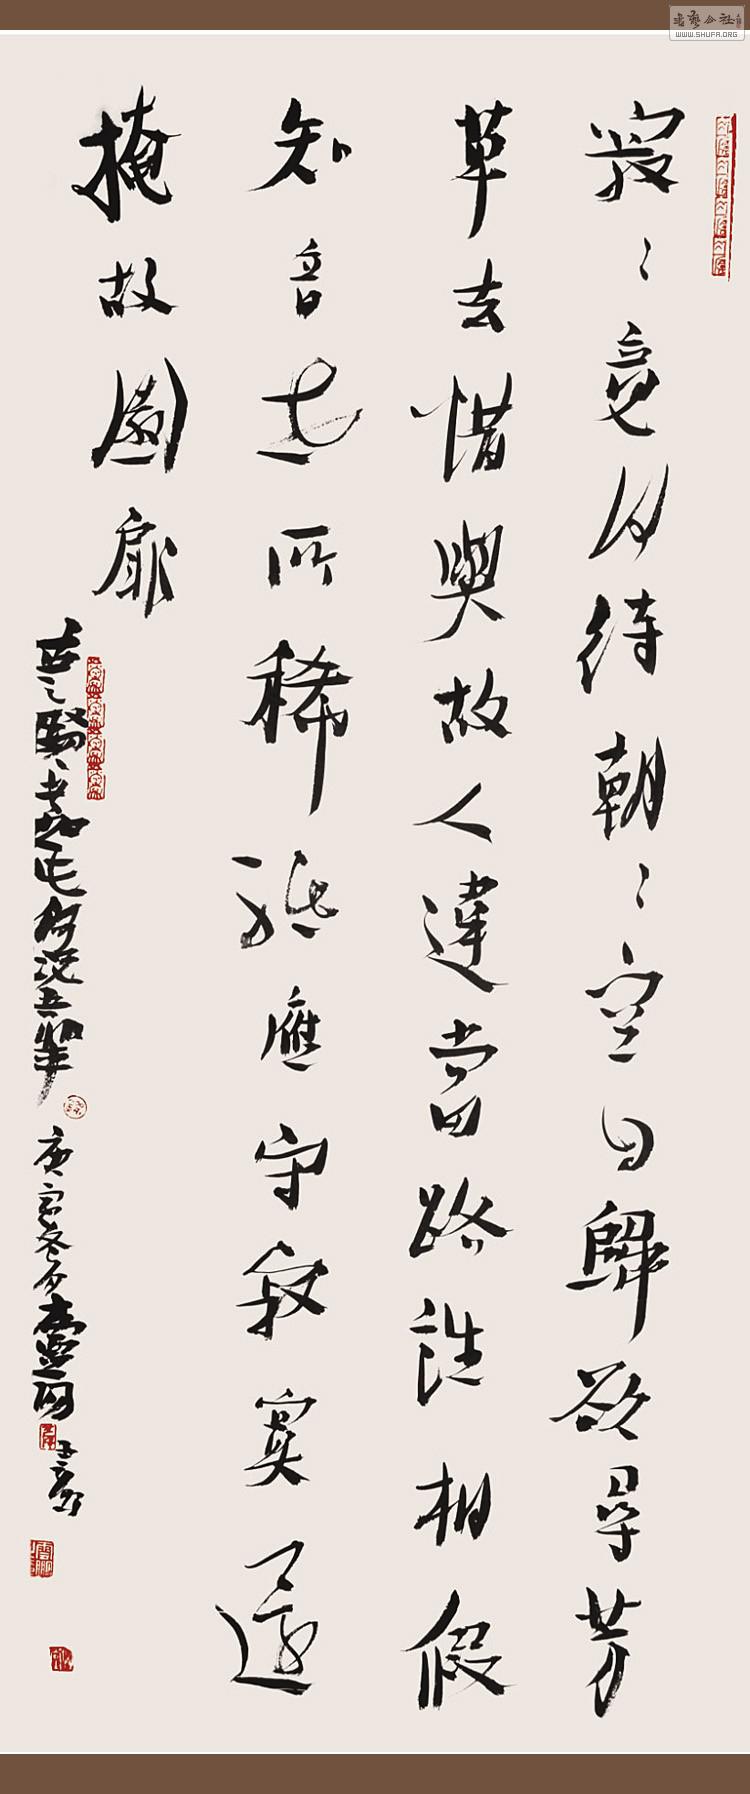 寂〻竟何待朝〻空自歸欲尋芳
草去惜與故人違當路誰相假
知音世所稀祗應守寂寞還
掩故園扉
何況吾輩
庚寅冬
書藝公社
WWW.SHUFA.ORG